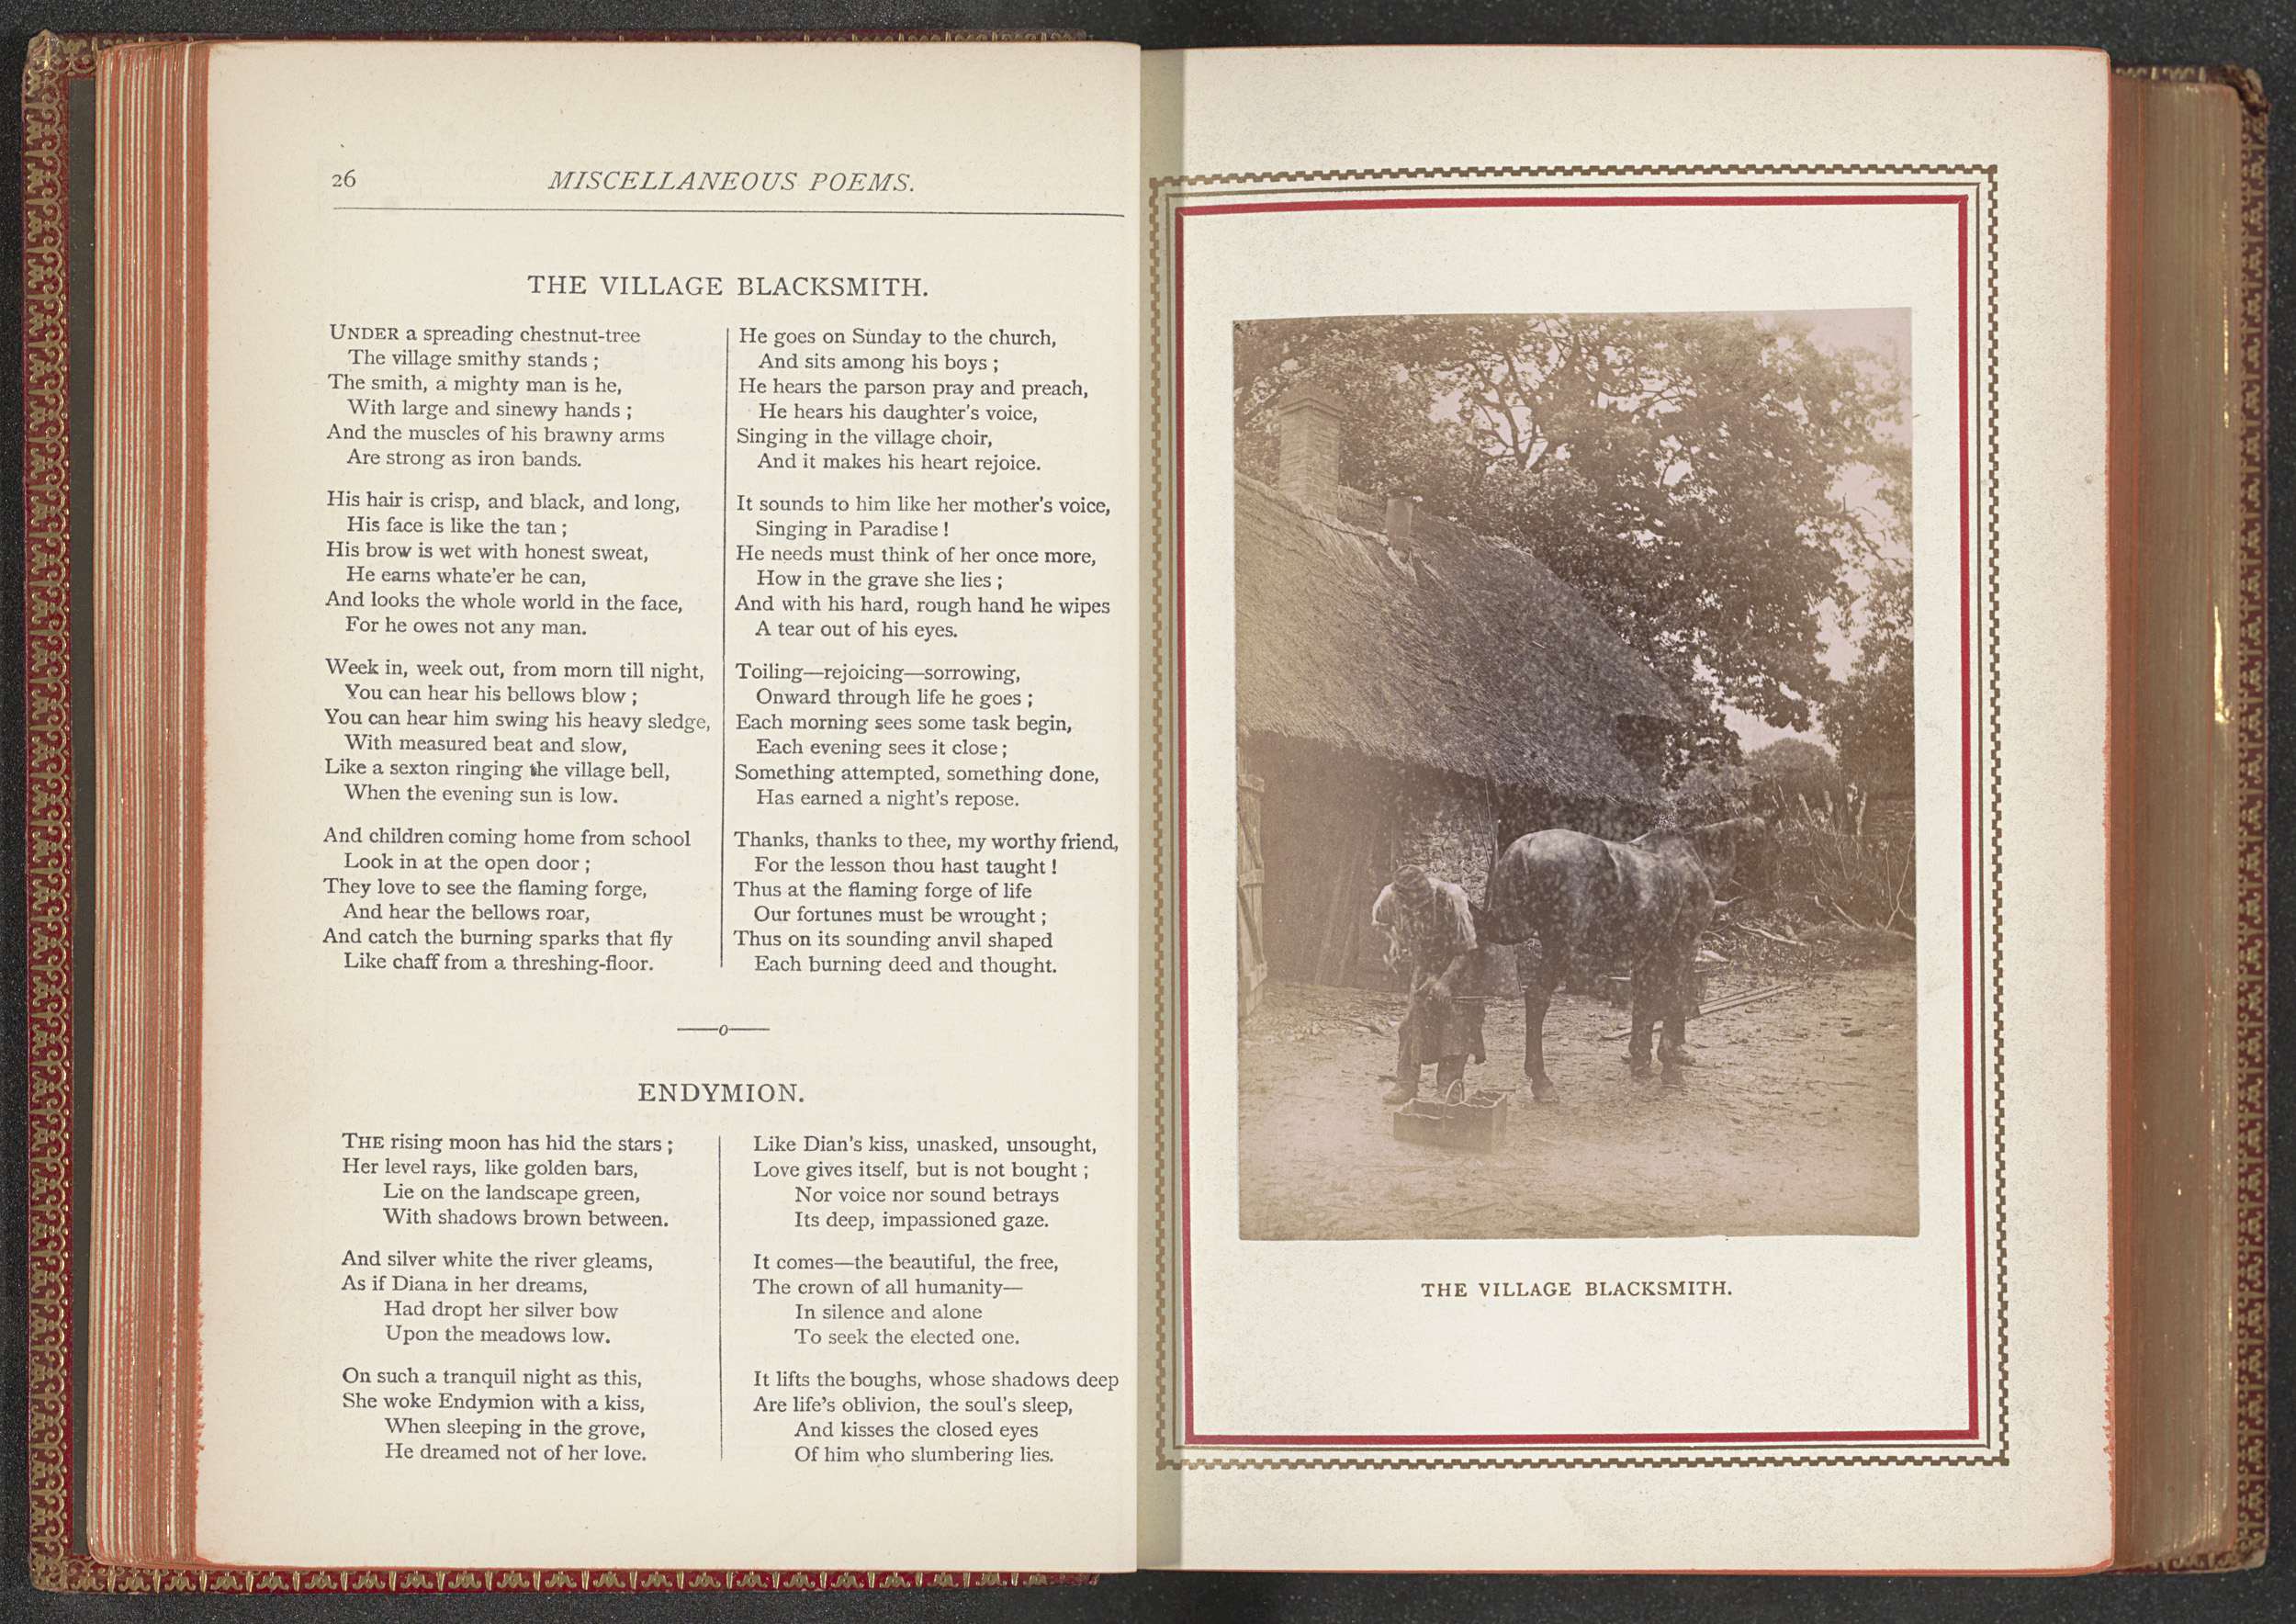 26
MISCELLANEOUS POEMS.
THE VILLAGE BLACKSMITH.
UNDER a spreading chestnut-tree
The village smithy stands ;
The smith, a mighty man is he,
With large and sinewy hands ;
And the muscles of his brawny arms
Are strong as iron bands.
His hair is crisp, and black, and long,
His face is like the tan ;
His brow is wet with honest sweat,
He earns whate'er he can,
And looks the whole world in the face,
For he owes not any man.
Week in, week out, from morn till night,
You can hear his bellows blow ;
You can hear him swing his heavy sledge,
With measured beat and slow,
Like a sexton ringing the village bell,
When the evening sun is low.
And children coming home from school
Look in at the open door ;
They love to see the flaming forge,
And hear the bellows roar,
And catch the burning sparks that fly
Like chaff from a threshing-floor.
He goes on Sunday to the church,
And sits among his boys ;
He hears the parson pray and preach,
He hears his daughter's voice,
Singing in the village choir,
And it makes his heart rejoice.
It sounds to him like her mother's voice,
Singing in Paradise !
He needs must think of her once more,
How in the grave she lies ;
And with his hard, rough hand he wipes
A tear out of his eyes.
Toiling—rejoicing—sorrowing,
Onward through life he goes ;
Each morning sees some task begin,
Each evening sees it close ;
Something attempted, something done,
Has earned a night's repose.
Thanks, thanks to thee, my worthy friend,
For the lesson thou hast taught !
Thus at the flaming forge of life
Our fortunes must be wrought ;
Thus on its sounding anvil shaped
Each burning deed and thought.
ENDYMION.
THE rising moon has hid the stars ;
Her level rays, like golden bars,
Lie on the landscape green,
With shadows brown between.
And silver white the river gleams,
As if Diana in her dreams,
Had dropt her silver bow
Upon the meadows low.
On such a tranquil night as this,
She woke Endymion with a kiss,
When sleeping in the grove,
He dreamed not of her love.
Like Dian's kiss, unasked, unsought,
Love gives itself, but is not bought ;
Nor voice nor sound betrays
Its deep, impassioned gaze.
It comes—the beautiful, the free,
The crown of all humanity—
In silence and alone
To seek the elected one.
It lifts the boughs, whose shadows deep
Are life's oblivion, the soul's sleep,
And kisses the closed eyes
Of him who slumbering lies.
THE VILLAGE BLACKSMITH.